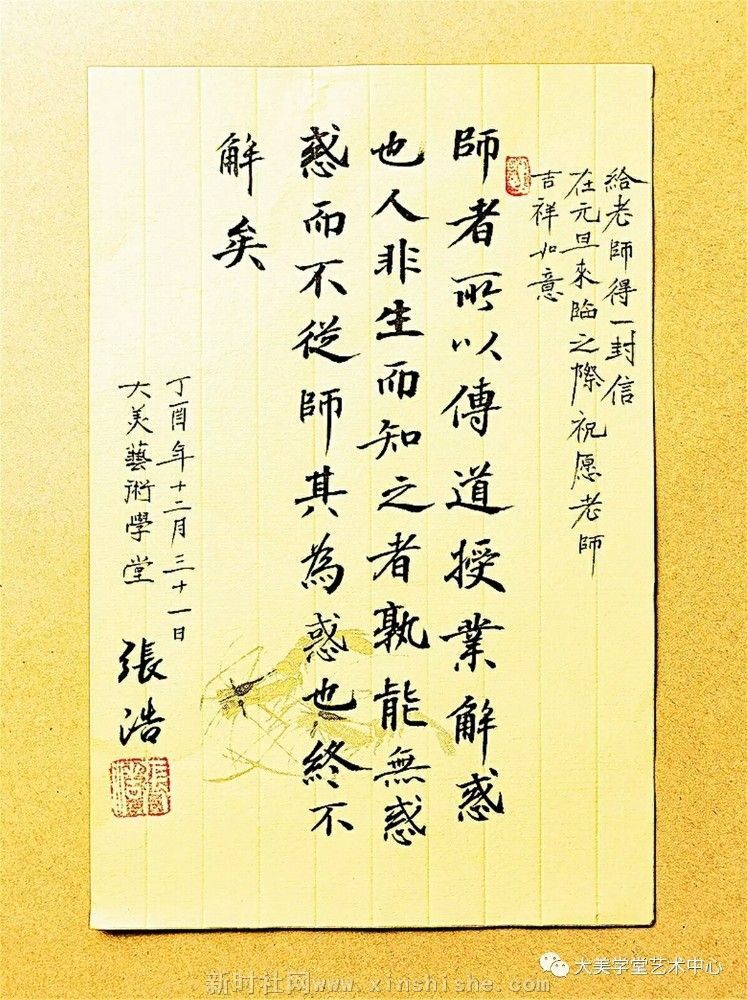 給老師得一封信
在元旦來臨之際祝愿老師
吉祥如意
師者所以傳道授業解惑
也人非生而知之者孰能無惑
惑而不從師其為惑也終不
解矣
丁酉年十二月三十一日
大美藝術學堂 張浩
大美学堂艺术中心
新时社网www.xinshishe.com